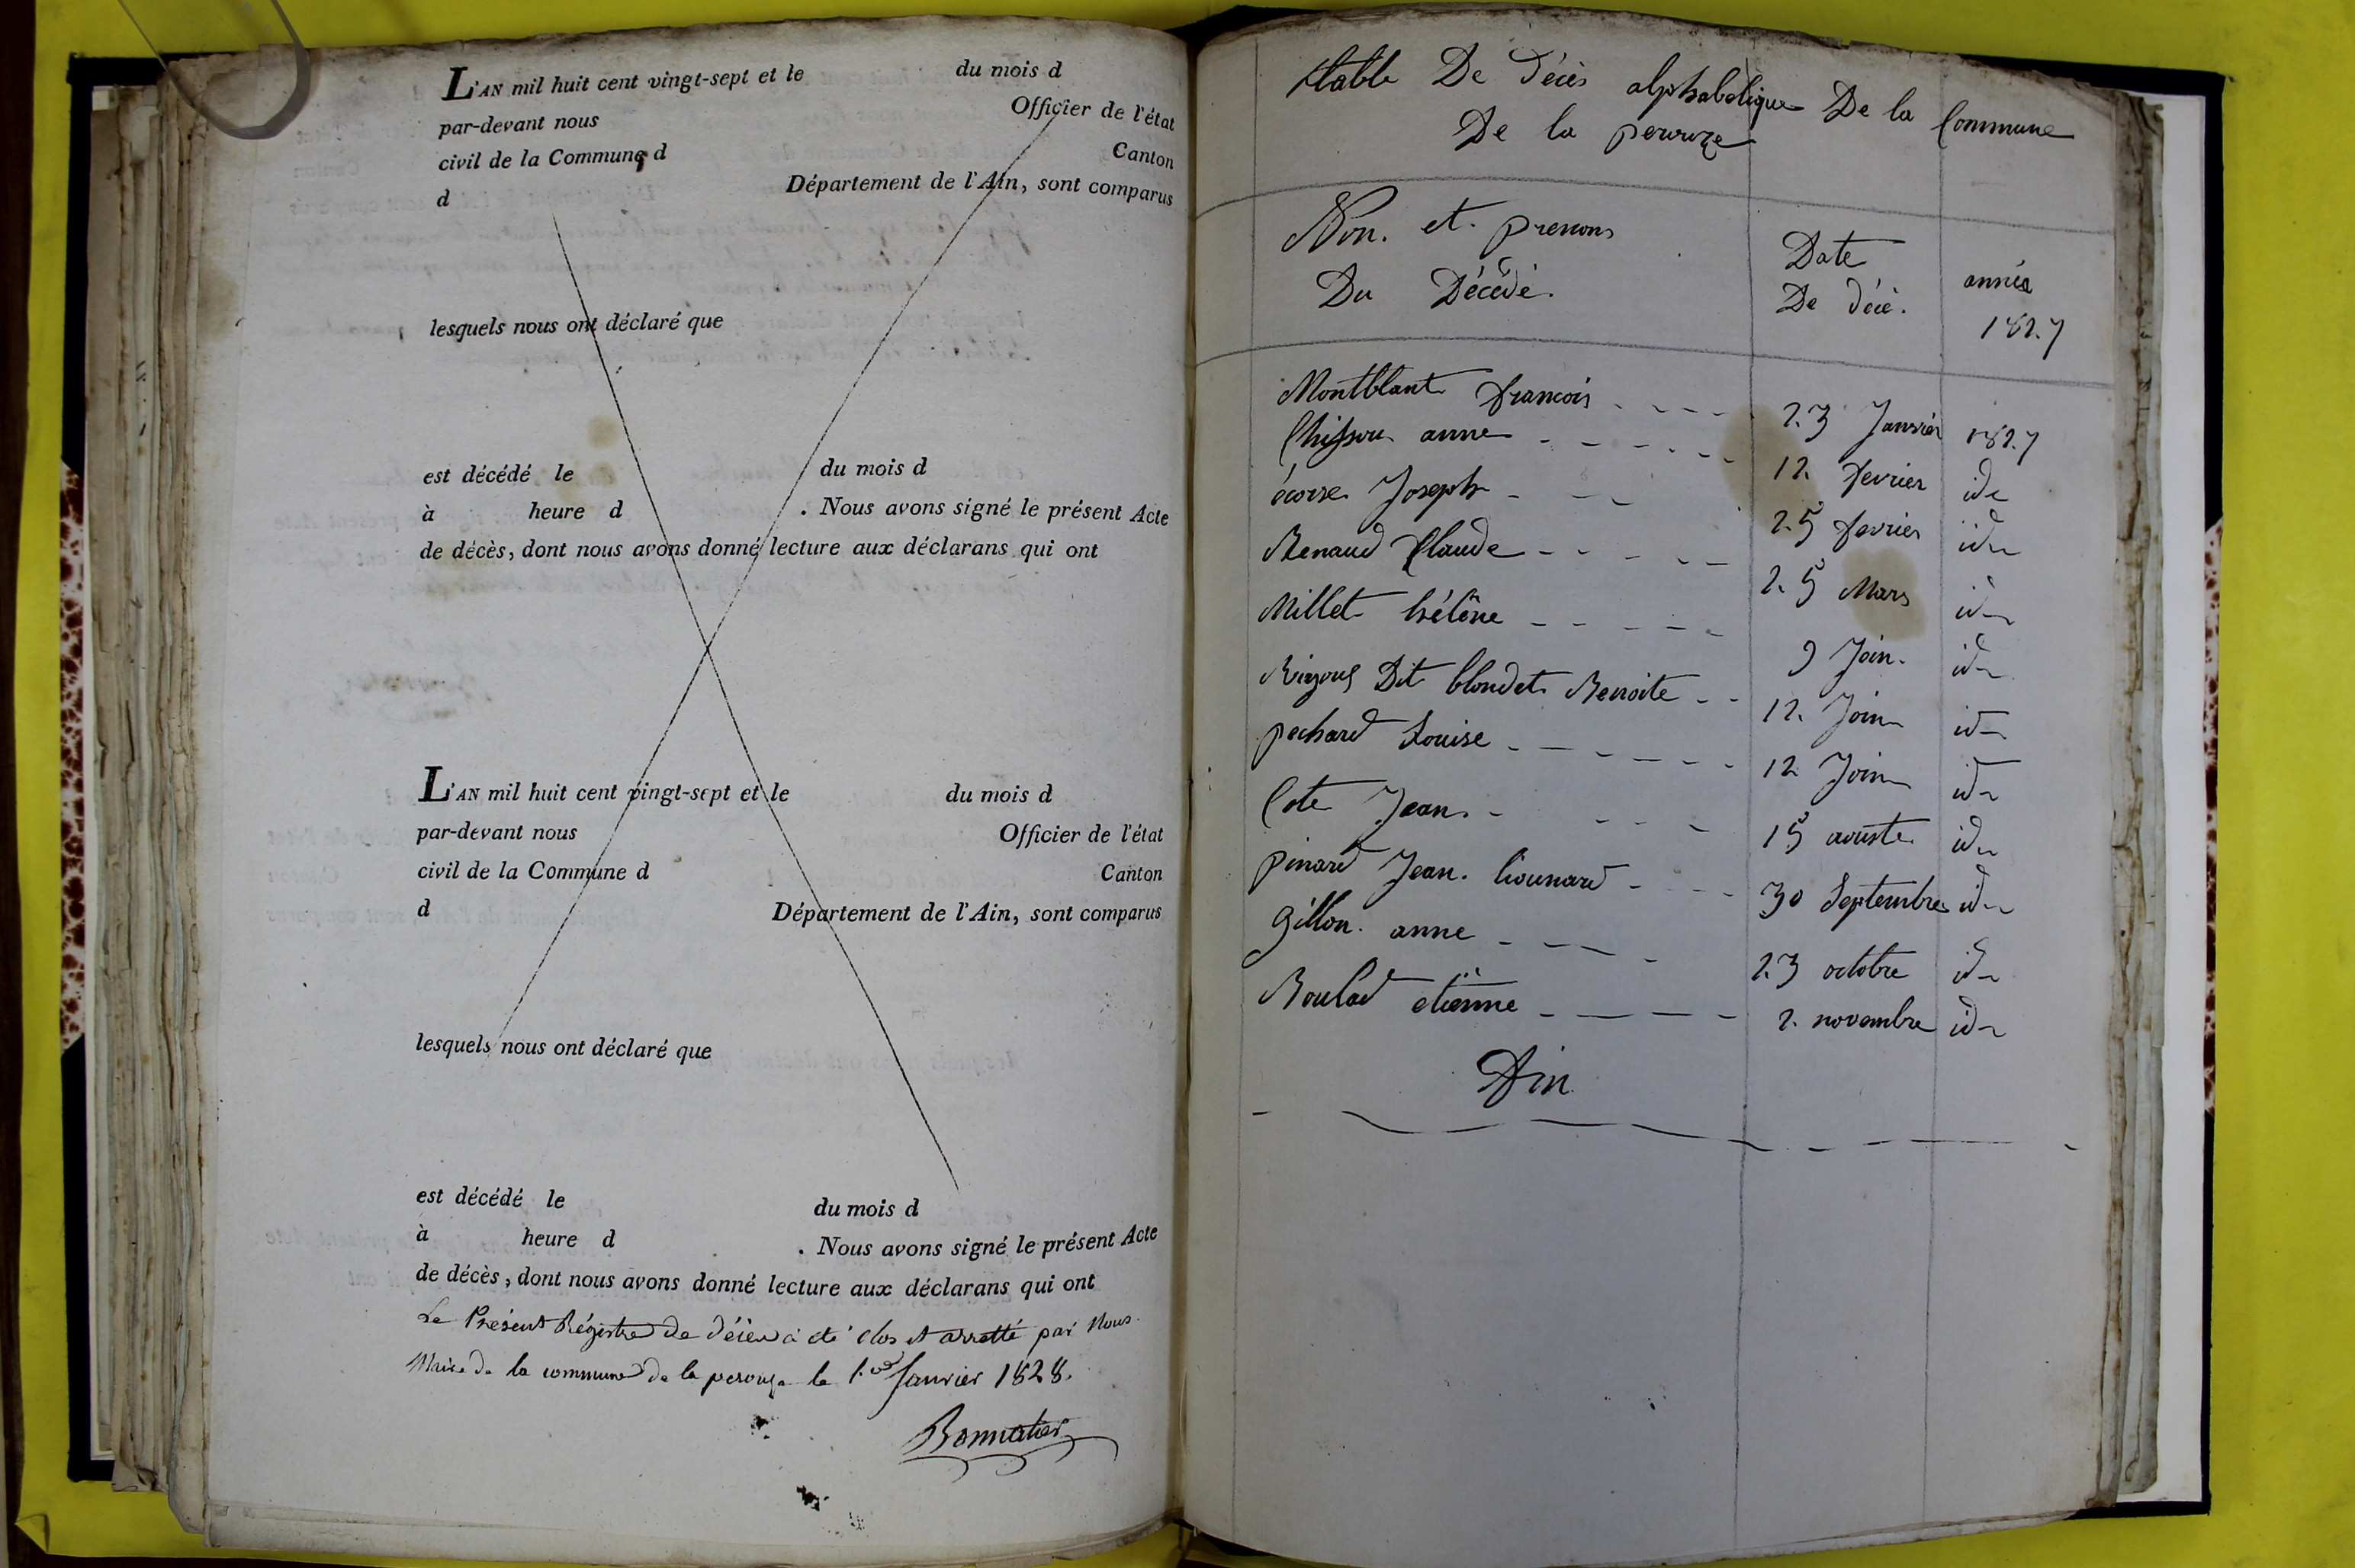 L'AN mil huit cent vingt-sept et le du mois d
par-devant nous Officier de l'état
civil de la Commune d Canton
d Département de l'Ain, sont comparus
lesquels nous ont déclaré que
est décédé le du mois d
à heure d . Nous avons signé le présent Acte
de décès, dont nous avons donné lecture aux déclarans qui ont
L'AN mil huit cent vingt-sept et le du mois d
par-devant nous Officier de l'état
civil de la Commune d Canton
d Département de l'Ain, sont comparus
lesquels nous ont déclaré que
est décédé le du mois d
à heure d . Nous avons signé le présent Acte
de décès, dont nous avons donné lecture aux déclarans qui ont
Le Présent Régistre de décès a été clos et arretté par Nous
Maire de la commune de la perouze le 1.er Janvier 1828.
table De décès alphabetique De la Commune
De la
Non. et. prenons
Du Décédé.
Date
De décé.
année
1827
Montblant francois 23 Janvier 1827
anne 12 fevrier ide
Joseph 25 fevrier ide
Renaud Claude 25 Mars id
Millet hélêne 9 Join. id
Dit blondet Benoite 12 Join id
pechard Louise 12 Join id
Cote Jean 15 auuste id
pinard Jean. 30 Septembre id
gillon. anne 23 octobre id
Boulad etienne 2 novembre id
fin